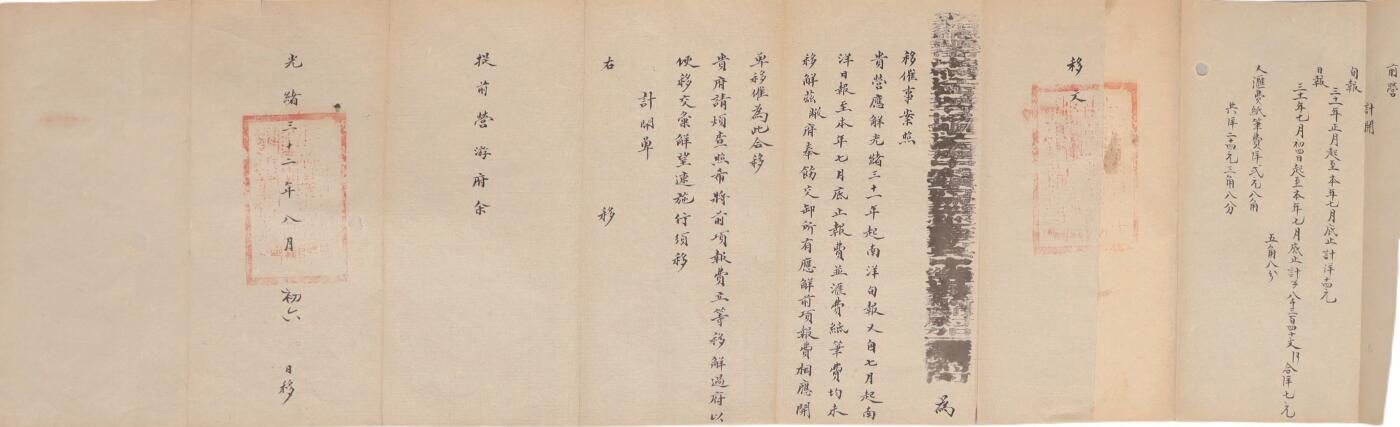 前營
計開
旬報
三十一年正月起至本年七月底止計洋十四元
日報
三十一年七月初四日起至本年七月底止計
八千三百四十文
合洋七元
五角八分
又滙費紙筆費洋弍元八角
共洋二十四元三角八分
移文
為
移催事案照
貴營應解光緒三十一年起南洋旬報又自七月起南
洋日報至本年七月底止報費並滙費紙筆費均未
移解茲敝府奉飭交卸所有應解前項報費相應開
單移催為此合移
貴府請煩查照希將前項報費立等移解過府以
便移交彙解望速施行須移
計開單
右
移
提前營游府余
光緒三十二年八月
初六
日移